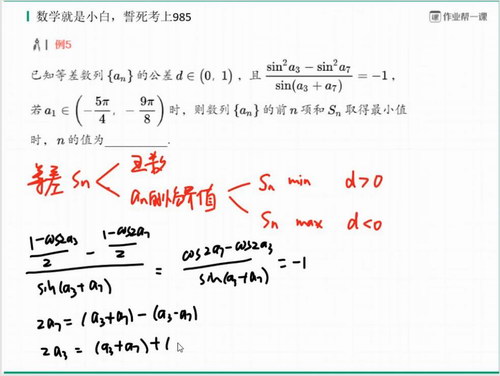 数学就是小白，誓死考上985
作业帮一课
例5
已知等差数列{aₙ}的公差d∈(0, 1)，且 (sin²a₃ − sin²a₇)/sin(a₃ + a₇) = −1，
若a₁∈(−5π/4, −9π/8)时，则数列{aₙ}的前n项和Sₙ取得最小值
时，n的值为________.
等差 Sₙ < 函数
aₙ的临界值 < Sₙ min d>0
Sₙ max d<0
((1-cos2a₃)/2 - (1-cos2a₇)/2)/sin(a₃+a₇) = (cos2a₇-cos2a₃)/sin(a₃+a₇) = -1
2a₇ = (a₃+a₇) - (a₃-a₇)
2a₃ = (a₃+a₇) + (